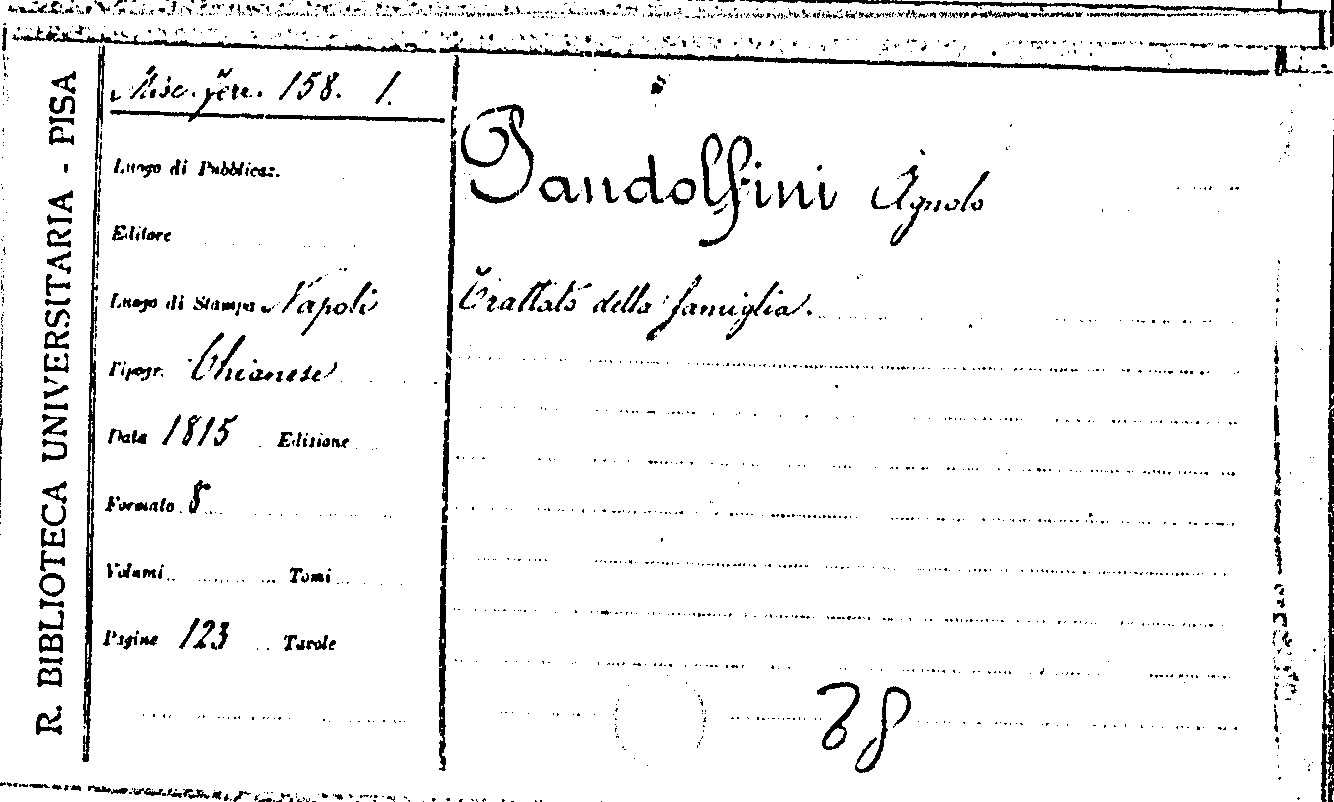 R. BIBLIOTECA UNIVERSITARIA - PISA
Misc. gen. 158. 1.
Luogo di Pubblicaz.
Editore
Luogo di Stampa Napoli
Tipogr. Chianese
Data 1815 Edizione
Formato 8°
Volumi Tomi
Pagine 123 Tavole
Pandolfini Agnolo
Trattato della famiglia.